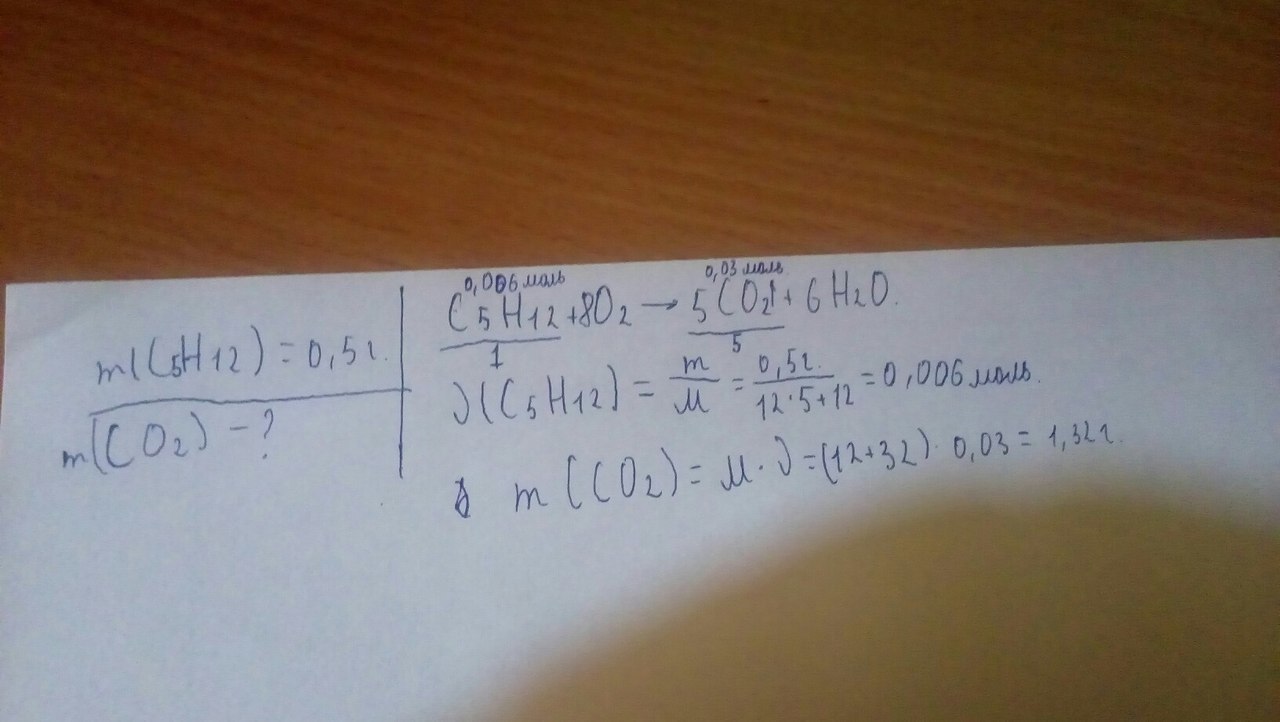 m(C₅H12) = 0,5г.
m(CO₂) - ?
0,006 моль 0,03 моль
C₅H12 + 8O₂ → 5CO₂ + 6H₂O.
1 5
ν(C₅H12) = m/M = 0,5г./12·5+12 = 0,006 моль.
m(CO₂) = M · ν = (12+32) · 0,03 = 1,32г.